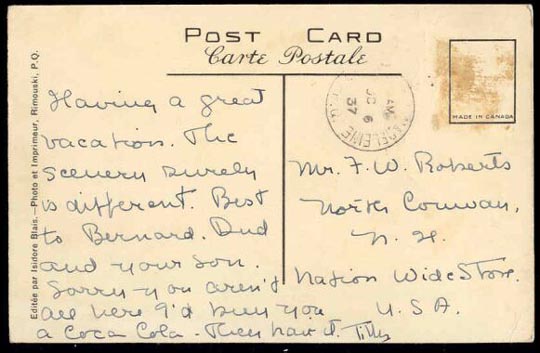 POST CARD
Carte Postale
Having a great
vacation. The
scenery surely
is different. Best
to Bernard. Dud
and your son.
Sorry you aren't
all here I'd buy you
a Coca Cola. Then have it.
Mr. F. W. Roberts
North Conway,
N. H.
Nation Wide Store.
U. S. A.
MADE IN CANADA
37
P.Q.
Editée par Isidore Blais.—Photo et Imprimeur, Rimouski, P.Q.